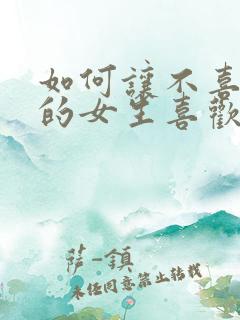 如何讓不喜
的女生喜歡
薩-鎮
未任同意禁止转载